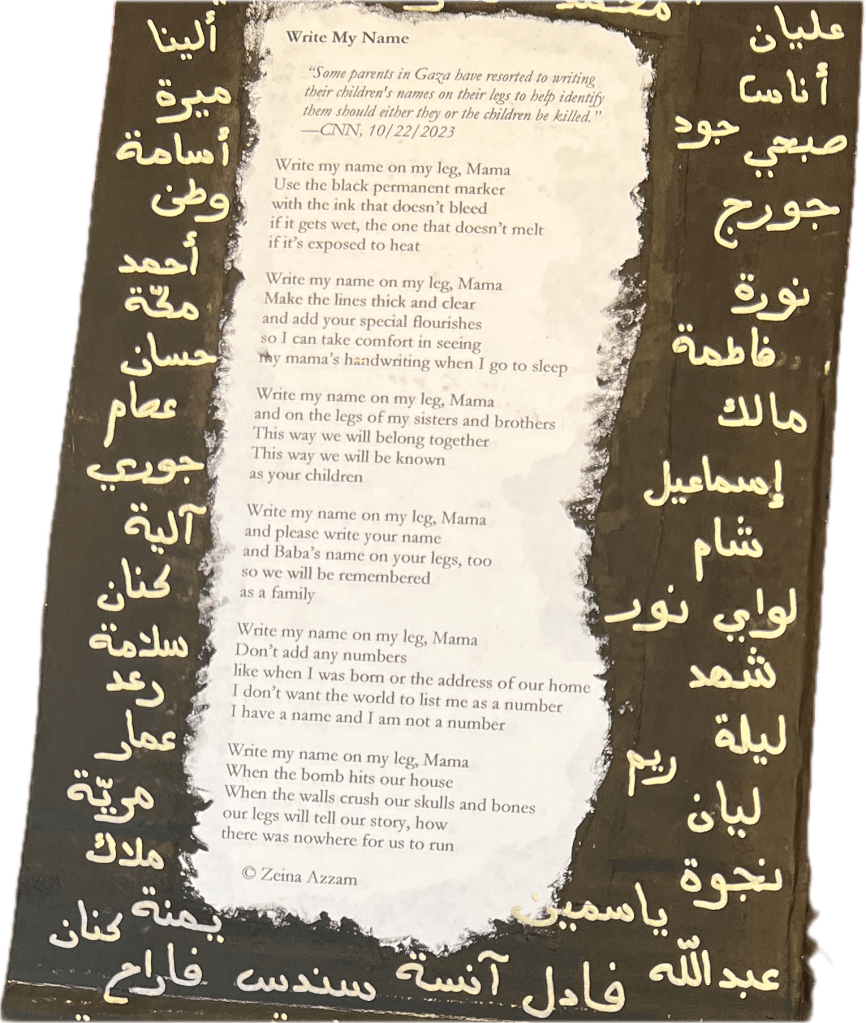 محمد
ألينا
ميرة
أسامة
وطن
أحمد
حسان
عصام
جوري
آلية
كنان
سلامة
رعد
عمار
ملاك
يمنة
كنان
Write My Name
“Some parents in Gaza have resorted to writing
their children's names on their legs to help identify
them should either they or the children be killed.”
—CNN, 10/22/2023
Write my name on my leg, Mama
Use the black permanent marker
with the ink that doesn’t bleed
if it gets wet, the one that doesn’t melt
if it’s exposed to heat
Write my name on my leg, Mama
Make the lines thick and clear
and add your special flourishes
so I can take comfort in seeing
my mama’s handwriting when I go to sleep
Write my name on my leg, Mama
and on the legs of my sisters and brothers
This way we will belong together
This way we will be known
as your children
Write my name on my leg, Mama
and please write your name
and Baba’s name on your legs, too
so we will be remembered
as a family
Write my name on my leg, Mama
Don’t add any numbers
like when I was born or the address of our home
I don’t want the world to list me as a number
I have a name and I am not a number
Write my name on my leg, Mama
When the bomb hits our house
When the walls crush our skulls and bones
our legs will tell our story, how
there was nowhere for us to run
© Zeina Azzam
عليان
أناسا
جود
صبحي
جورج
نورة
فاطمة
مالك
إسماعيل
شام
لواي نور
شهد
ليلة
ريم
ليان
نجوة
ياسمين
عبدالله فادل آنسة سندس فاراح